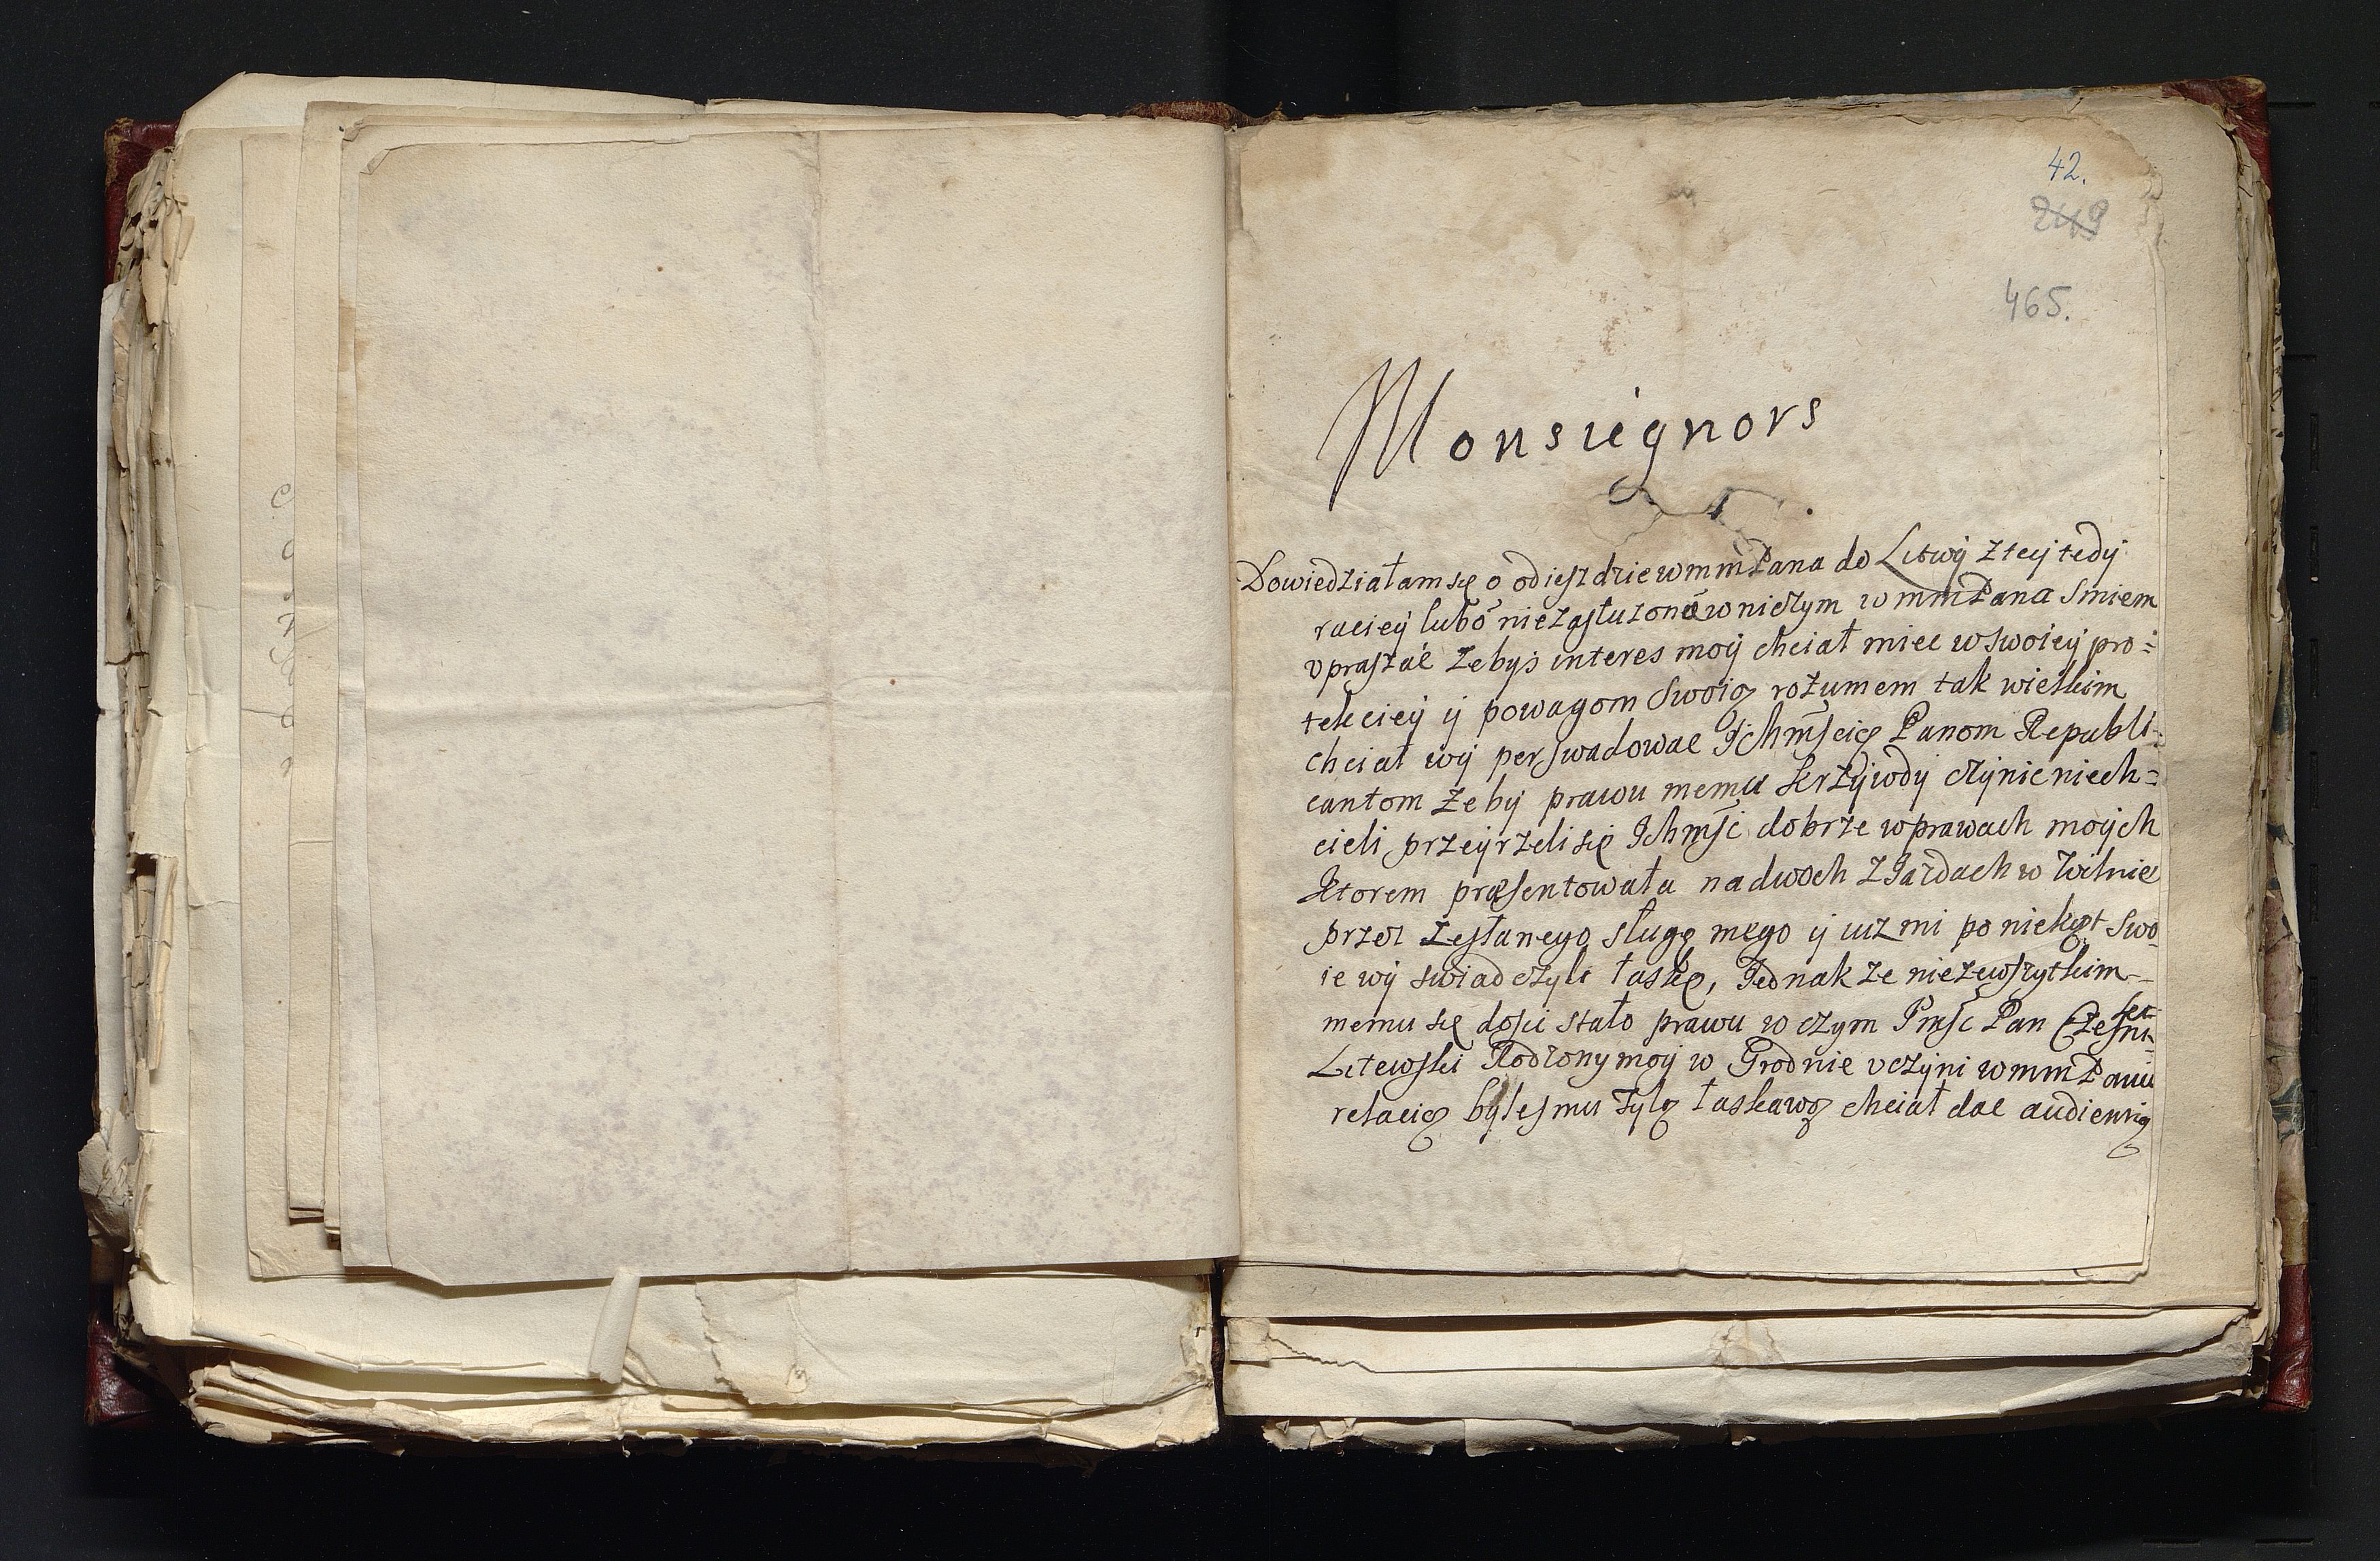 42.
249
465.
Monsiegnors
Dowiedziałam się o odieszdzie wmmPana do Litwÿ z teÿ tedÿ
racieÿ lubo niezasłuzona w niczym wmmPana smiem
vpraszać zebÿs interes moÿ chciał miec w swoieÿ pro=
tekcieÿ ÿ powagom swoią rozumem tak wielkim
chciał wÿ perswadowac Ichmscię Panom Republi=
cantom zebÿ prawu memu krzÿwdÿ czÿnic niech=
cieli przeÿrzeli się Ichmśc dobrze w prawach moÿch
Ktorem præsentowała na dwoch ZIazdach w Wilnie
przez zesłanego sługę mego ÿ iuz mi poniekąt swo
ie wÿ swiadczÿli łaskę, Jednak ze nie ze wszytkim
memu się dosic stało prawu w czym Jmśc Pan Czesni
kLitewski Rodzony moÿ w Grodnie vczÿni wmmPanu
relacią bÿles mu Tÿlo łaskawą chciał dac audienrią